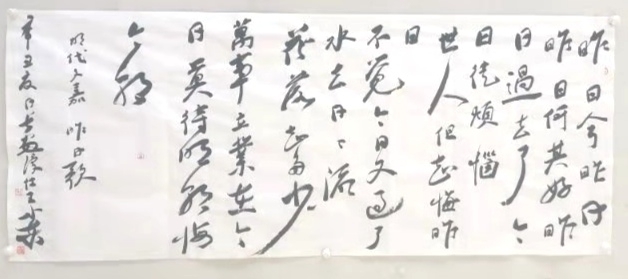 昨日兮昨日
昨日何其好昨
日過去了今
日徒煩惱
世人但知悔昨
日
不覺今日又過了
水去日〻流
花落知多少
萬事立業在今
日莫待明朝悔
今朝
明代文嘉昨日歌
辛丑